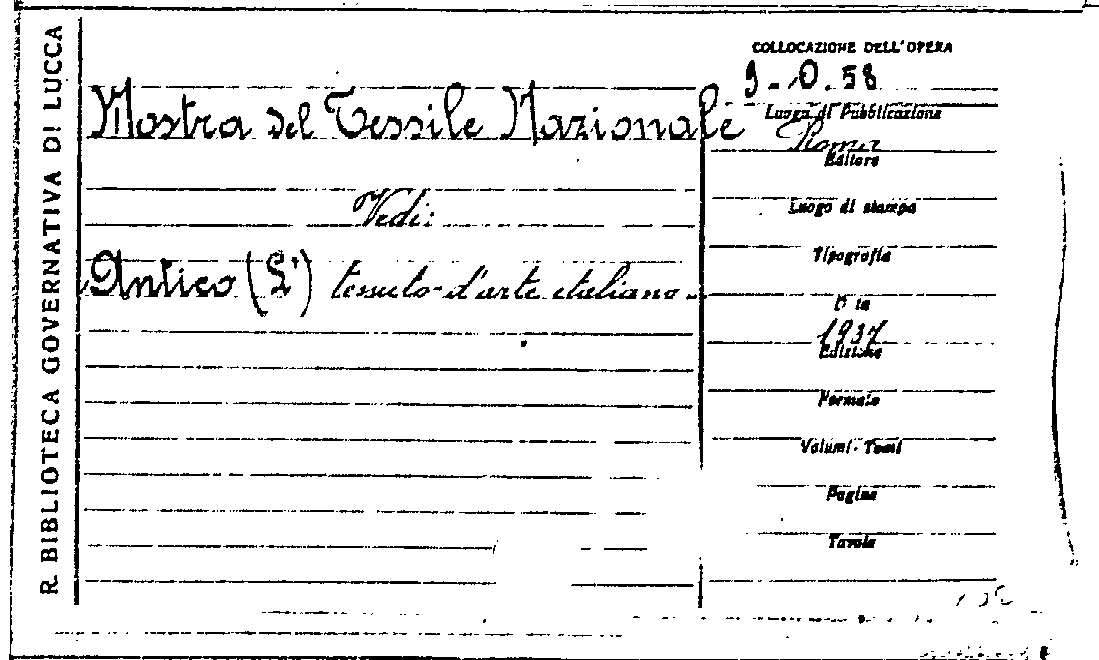 R. BIBLIOTECA GOVERNATIVA DI LUCCA
COLLOCAZIONE DELL'OPERA
9-.O.58
Mostra del Tessile Nazionale
Luogo di Pubblicazione
Roma
Editore
Vedi:
Luogo di stampa
Antico (L') tessuto d'arte italiano.
Tipografia
D ta
1937
Edizione
Formato
Volumi - Tomi
Pagine
Tavole